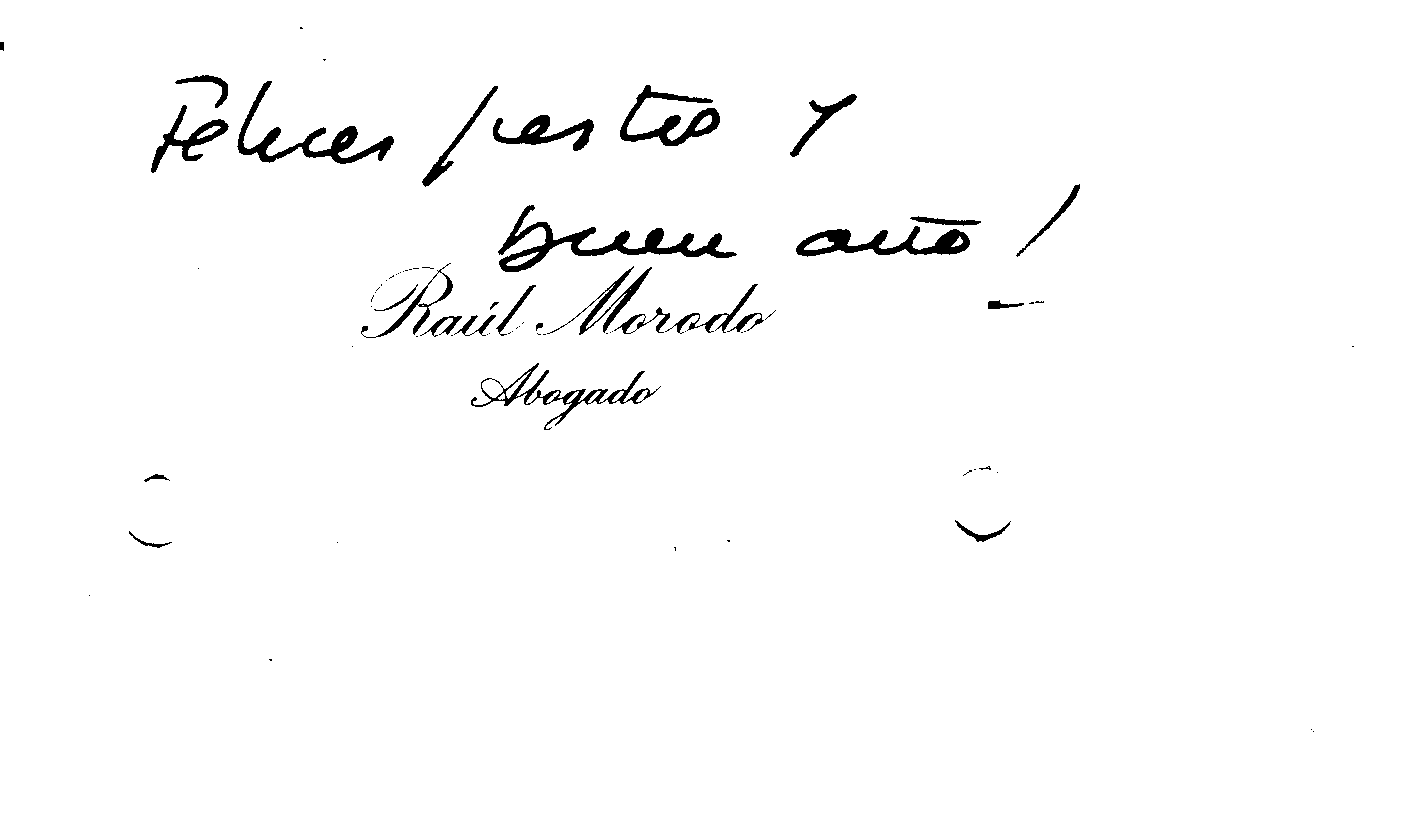 Felices fiestas y
buen año!
Raúl Morodo
Abogado